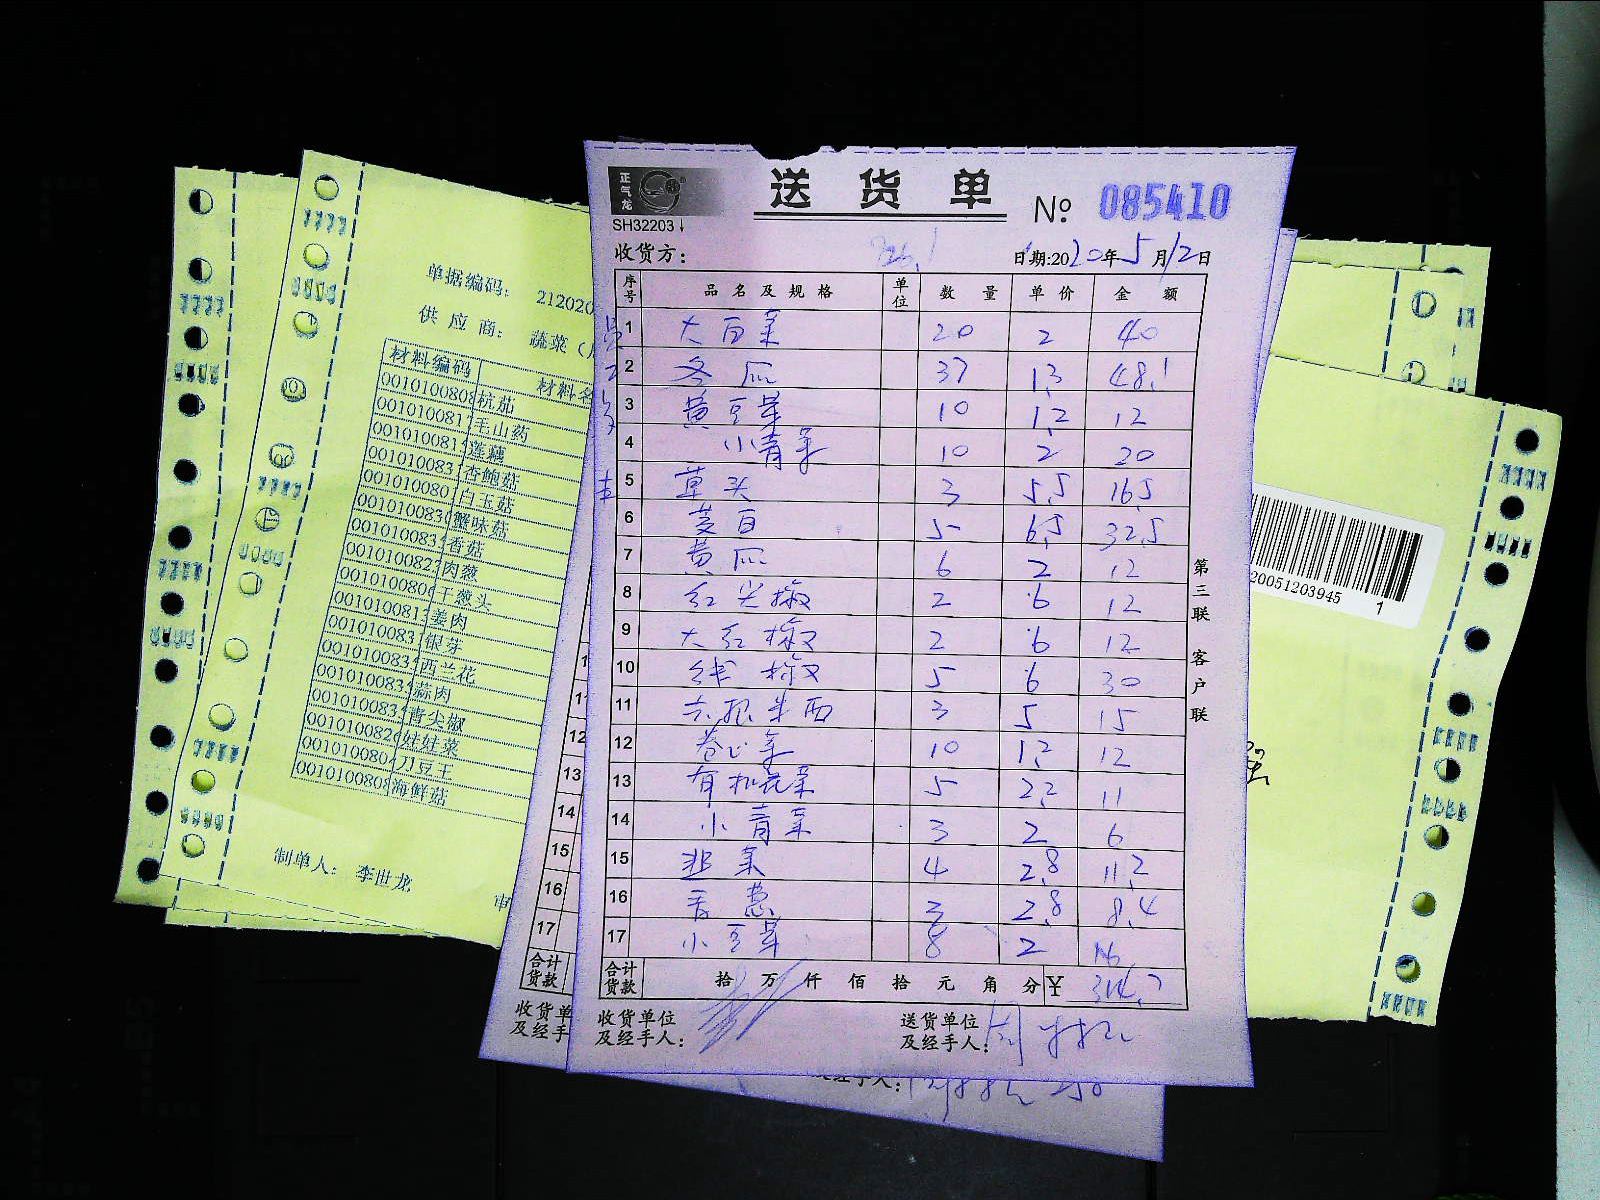 正气龙
送货单 No 085410
SH32203
收货方: 日期:2020年5月12日
序号 品名及规格 单位 数量 单价 金额
1 大白菜 20 2 40
2 冬瓜 37 1.3 48.1
3 黄豆芽 10 1.2 12
4 小青菜 10 2 20
5 草头 3 5.5 16.5
6 茭白 5 6.5 32.5
7 黄瓜 6 2 12
8 红尖椒 2 6 12
9 大红椒 2 6 12
10 线椒 5 6 30
11 3 5 15
12 卷心菜 10 1.2 12
13 有机花菜 5 2.2 11
14 小青菜 3 2 6
15 韭菜 4 2.8 11.2
16 青葱 3 2.8 8.4
17 小豆芽 8 2 16
合计货款 拾万仟佰拾元角分 ¥ 314.7
收货单位及经手人: 送货单位及经手人: 周
第三联 客户联
单据编码: 212020
供应商: 蔬菜（
材料编码 材料名
0010100808 杭茄
001010081 毛山药
001010081 莲藕
001010083 杏鲍菇
001010080 白玉菇
001010083 蟹味菇
001010083 香菇
001010082 肉葱
001010080 干葱头
001010081 姜肉
001010083 银芽
001010083 西兰花
001010083 蒜肉
001010083 青尖椒
001010082 娃娃菜
001010080 刀豆王
001010080 海鲜菇
制单人: 李世龙
审
12
13
14
15
16
17
合计货款
收货单
及经手
及经手人:
20051203945 1